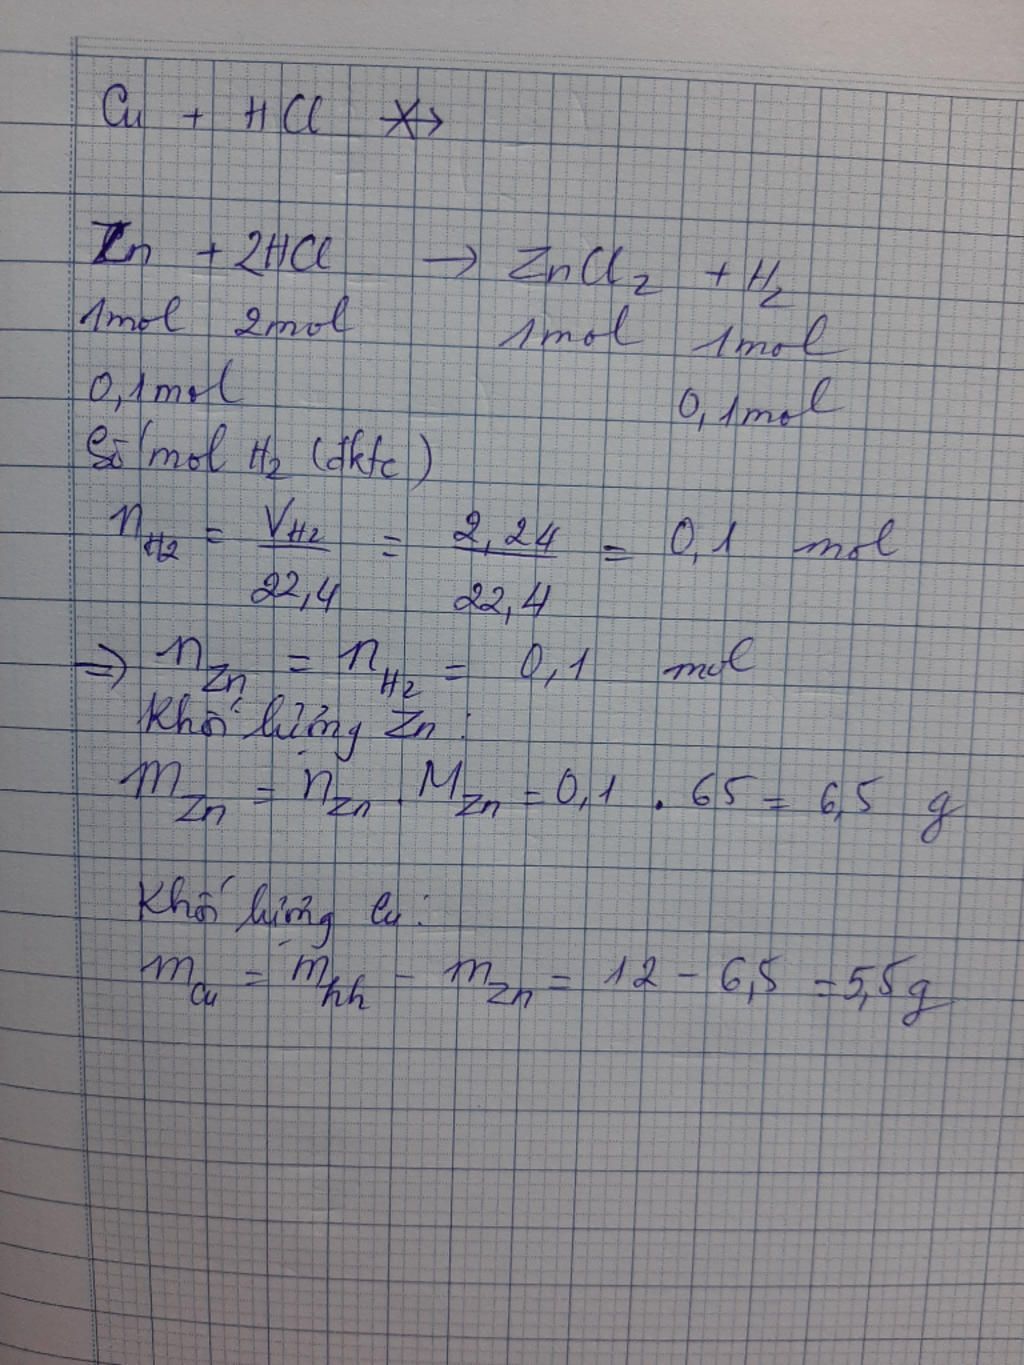 Cu + HCl ↛
Zn + 2HCl → ZnCl₂ + H₂
1mol 2mol 1mol 1mol
0,1mol 0,1mol
Số mol H₂ (đktc)
n_H₂ = V_H₂ / 22,4 = 2,24 / 22,4 = 0,1 mol
⇒ n_Zn = n_H₂ = 0,1 mol
Khối lượng Zn :
m_Zn = n_Zn . M_Zn = 0,1 . 65 = 6,5 g
Khối lượng Cu :
m_Cu = m_hh - m_Zn = 12 - 6,5 = 5,5g